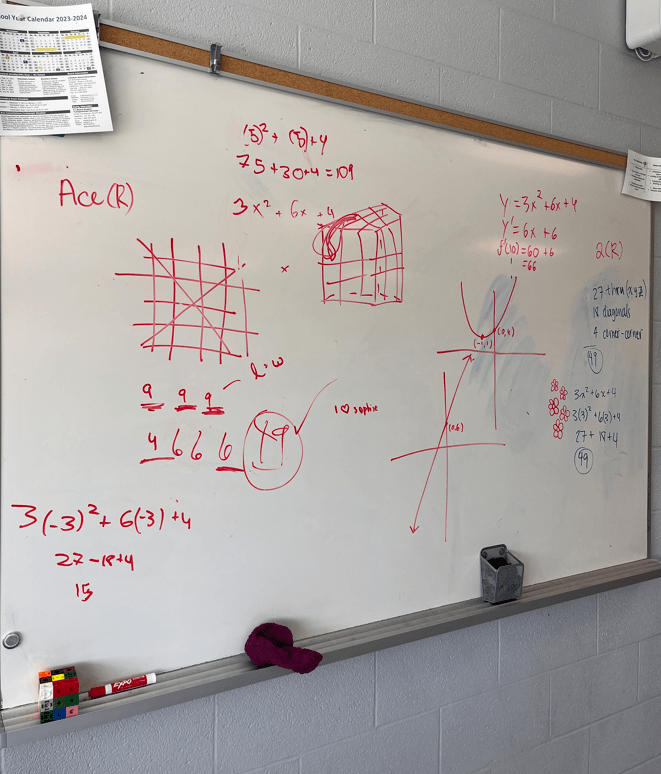 ool Year Calendar 2023-2024
(5)² + (5)+4
75+30+4=109
Ace(R)
3x² + 6x + 4
x
l=w
9 9 9
4 6 6 6 49
I ♡ sophie
3(-3)² + 6(-3) +4
27-18+4
15
y = 3x² + 6x + 4
y' = 6x + 6
f'(10) = 60 + 6
= 66
(0,4)
(-1,1)
(0,6)
2(R)
27 thru (x,y,z)
18 diagonals
4 corner-corner
49
3x² + 6x + 4
3(3)² + 6(3) + 4
27 + 18 + 4
49
EXPO